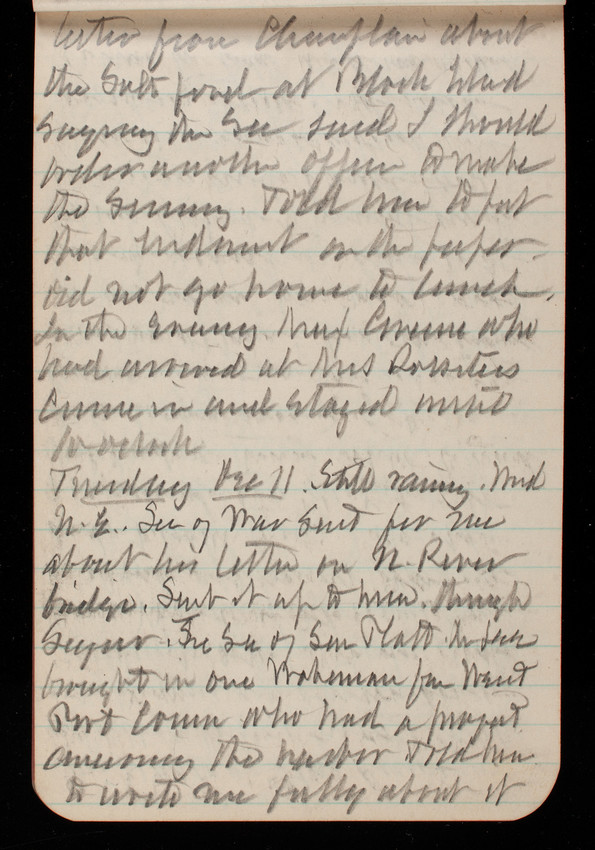 letter from Champlain about
the Salt pond at Block Island
Saying the Sec said I should
order another officer to make
the Survey. Told him to put
that indorsement on the paper.
Did not go home to lunch.
In the evening Mrs Greene who
had arrived at Mrs Rossiters
Came in and stayed until
10 oclock
Tuesday Dec 11. Still raining. Wind
N.E. Sec of War Sent for me
about his letter on N. River
bridge. Sent it up to him through
The Sec of Sen Platt
brought in one Wakeman from West
Port Conn who had a project
concerning the harbor Told him
to write me fully about it